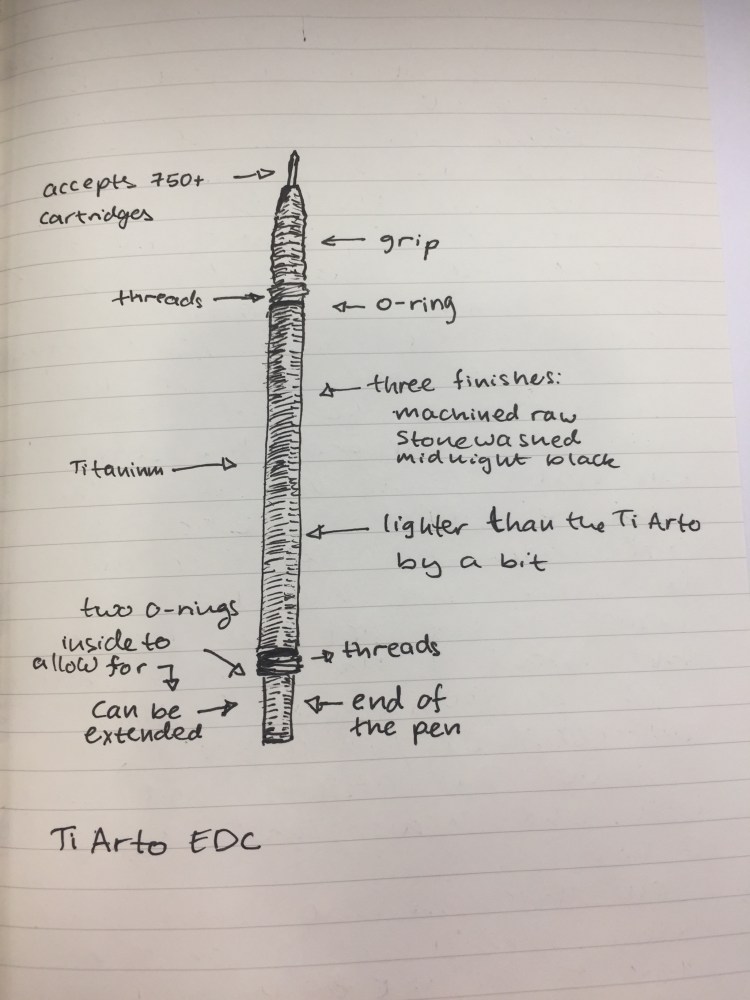 accepts 750+
cartridges
grip
threads
o-ring
three finishes:
machined raw
stonewashed
midnight black
Titanium
lighter than the Ti Arto
by a bit
two o-rings
inside to
allow for
threads
can be
extended
end of
the pen
Ti Arto EDC